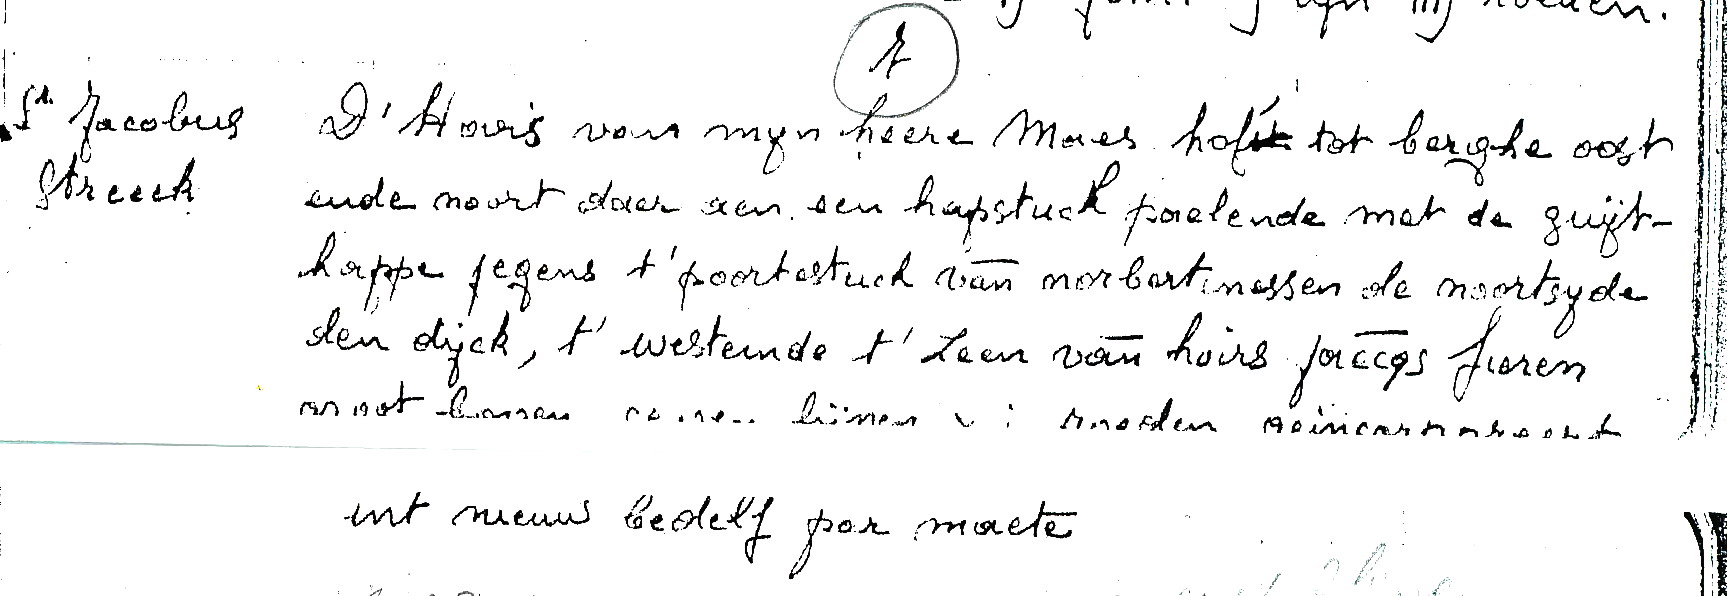 roeden.
St. Jacobus
Streeck
D' Hoirs van myn heere Maes hof tot berghe oost
ende noort daer aen een hapstuck paelende met de zuijt-
happe jegens t' poortestuck van norbertinessen de noortsyde
den dijck, t' westeinde t' Leen van hoirs jaecqs fieren
groot lijnen roeden geincorporeert
int nieuw bedelf par maete